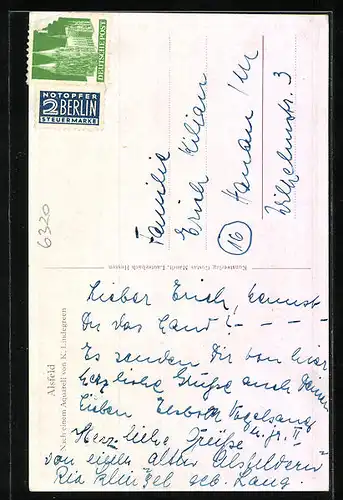 DEUTSCHE POST
NOTOPFER
2 BERLIN
STEUERMARKE
6320
Familie
Erich Kilian
(16) Hanau /M
Wilhelmstr. 3
Kunstverlag Gustav Mandt, Lauterbach Hessen
Alsfeld
Nach einem Aquarell von K. Lindegreen
Lieber Erich, kennst
Du das Land? - - - -
Es senden Dir von hier
herzliche Grüße auch Deinen
Lieben Vogelsang
u. jr. II
Herzliche Grüße
von einer alten Alsfelderin
Ria geb. Lang.